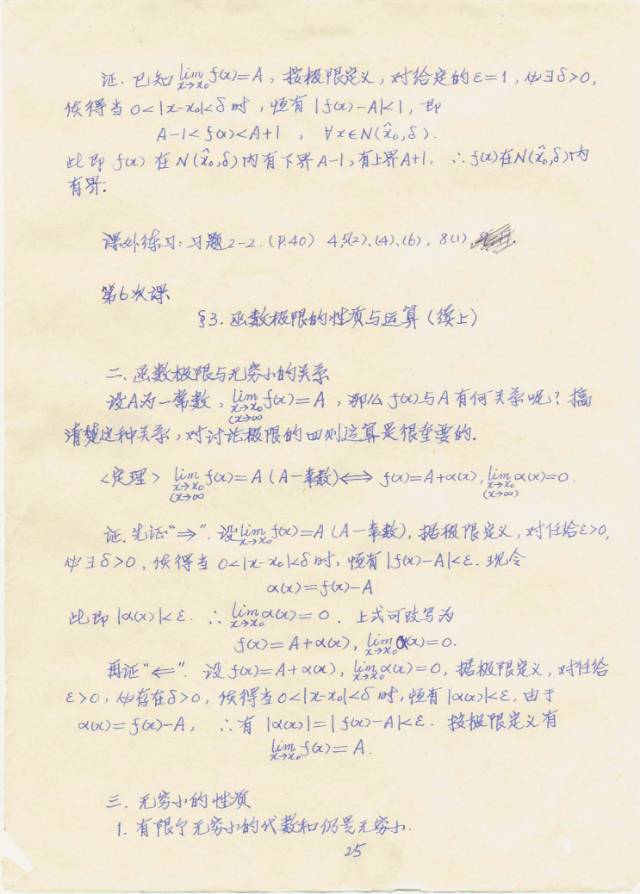 证. 已知 lim_{x→x₀} f(x)=A, 按极限定义, 对给定的 ε=1, 必∃δ>0,
使得当 0<|x-x₀|<δ 时, 恒有 |f(x)-A|<1, 即
A-1<f(x)<A+1 , ∀x∈N(x̂₀,δ).
此即 f(x) 在 N(x̂₀,δ) 内有下界 A-1, 有上界 A+1. ∴ f(x) 在 N(x̂₀,δ) 内
有界.
课外练习: 习题2-2. (P.40) 4,5(2).(4).(6), 8(1),
第6次课
§3. 函数极限的性质与运算 (续上)
二. 函数极限与无穷小的关系
设A为一常数, lim_{x→x₀ (x→∞)} f(x)=A, 那么 f(x)与A有何关系呢? 搞
清楚这种关系, 对讨论极限的四则运算是很重要的.
<定理> lim_{x→x₀ (x→∞)} f(x)=A (A—常数) ⟺ f(x)=A+α(x), lim_{x→x₀ (x→∞)} α(x)=0.
证. 先证"⇒". 设 lim_{x→x₀} f(x)=A (A—常数), 据极限定义, 对任给ε>0,
必∃δ>0, 使得当 0<|x-x₀|<δ 时, 恒有 |f(x)-A|<ε. 现令
α(x)=f(x)-A
此即 |α(x)|<ε. ∴ lim_{x→x₀} α(x)=0. 上式可改写为
f(x)=A+α(x), lim_{x→x₀} α(x)=0.
再证"⇐". 设 f(x)=A+α(x), lim_{x→x₀} α(x)=0, 据极限定义, 对任给
ε>0, 必存在δ>0, 使得当 0<|x-x₀|<δ 时, 恒有 |α(x)|<ε. 由于
α(x)=f(x)-A, ∴有 |α(x)|=|f(x)-A|<ε. 按极限定义有
lim_{x→x₀} f(x)=A.
三. 无穷小的性质
1. 有限个无穷小的代数和仍是无穷小.
25